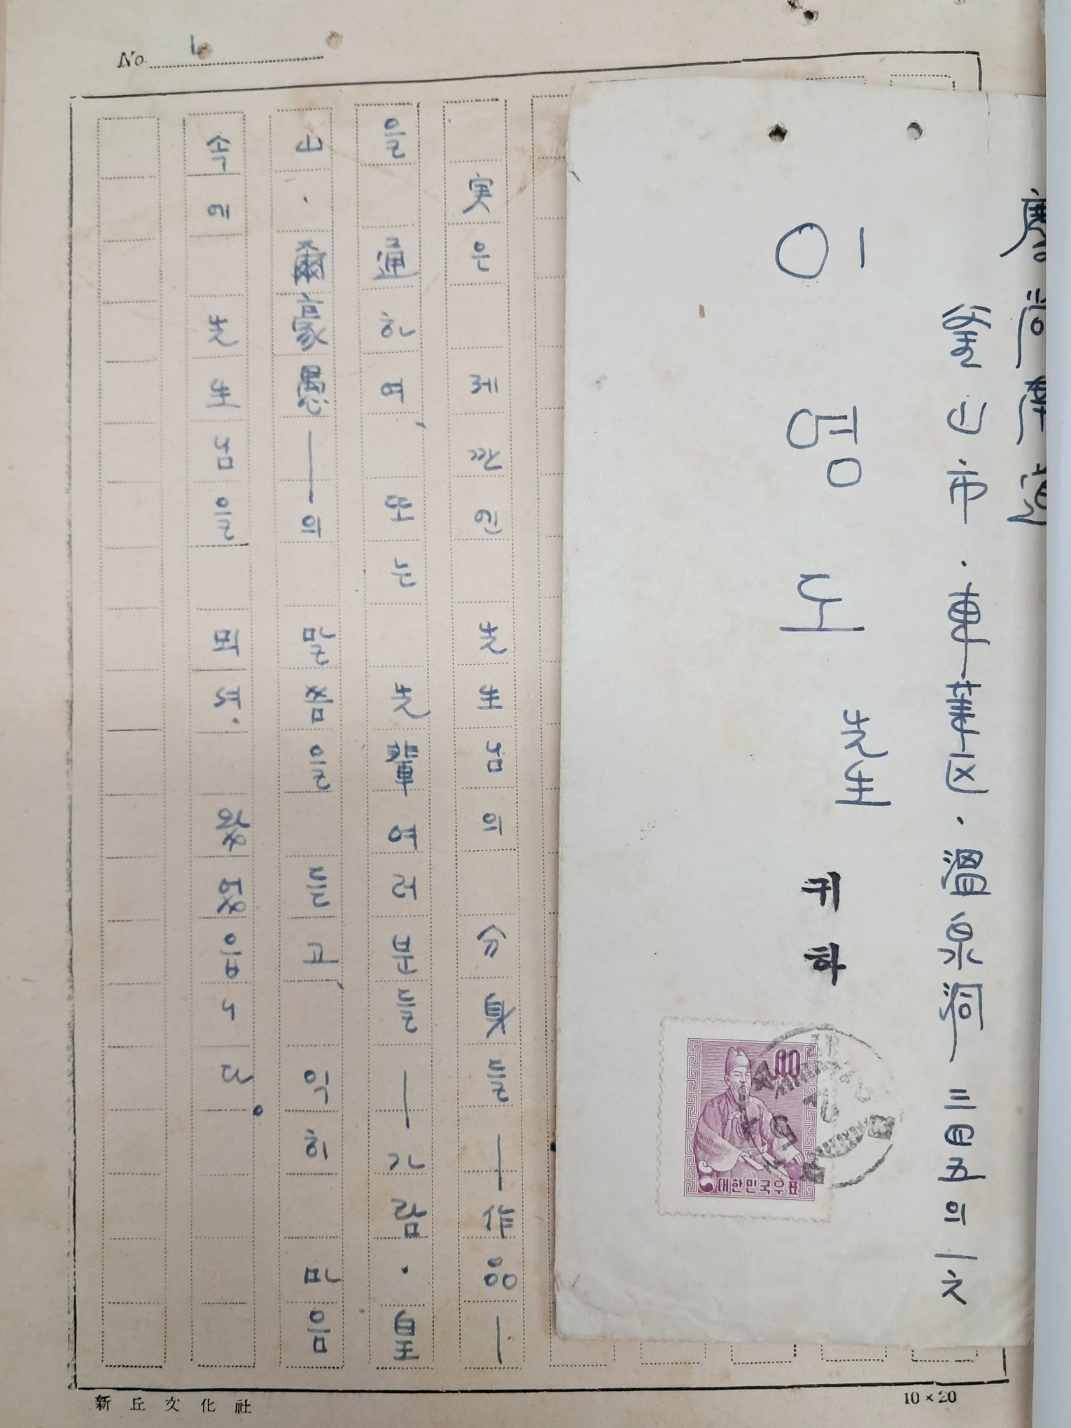 No. 1
慶尙南道
釜山市·東萊区·溫泉洞 三四五의 一六
이영도 先生 귀하
40
대한민국우표
実은 제깐인 先生님의 分身들―作品―
을 通하여, 또는 先輩 여러분들―가람·皇
山·爾豪愚―의 말씀을 듣고, 익히 마음
속에 先生님을 뫼셔 왔었읍니다.
新丘文化社
10×20